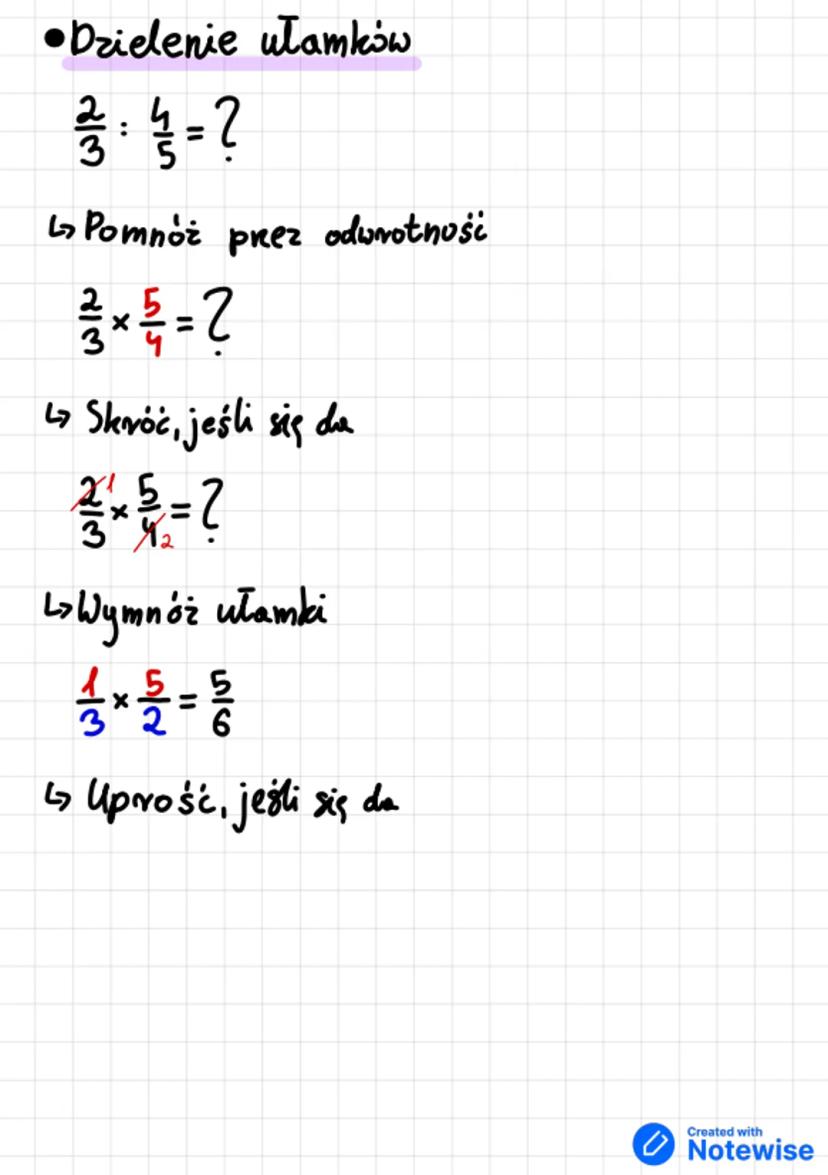 • Dzielenie ułamków
2/3 : 4/5 = ?
↳ Pomnóż przez odwrotność
2/3 × 5/4 = ?
↳ Skróć, jeśli się da
2/3 1 × 5/4 2 = ?
↳ Wymnóż ułamki
1/3 × 5/2 = 5/6
↳ Uprość, jeśli się da
Created with
Notewise